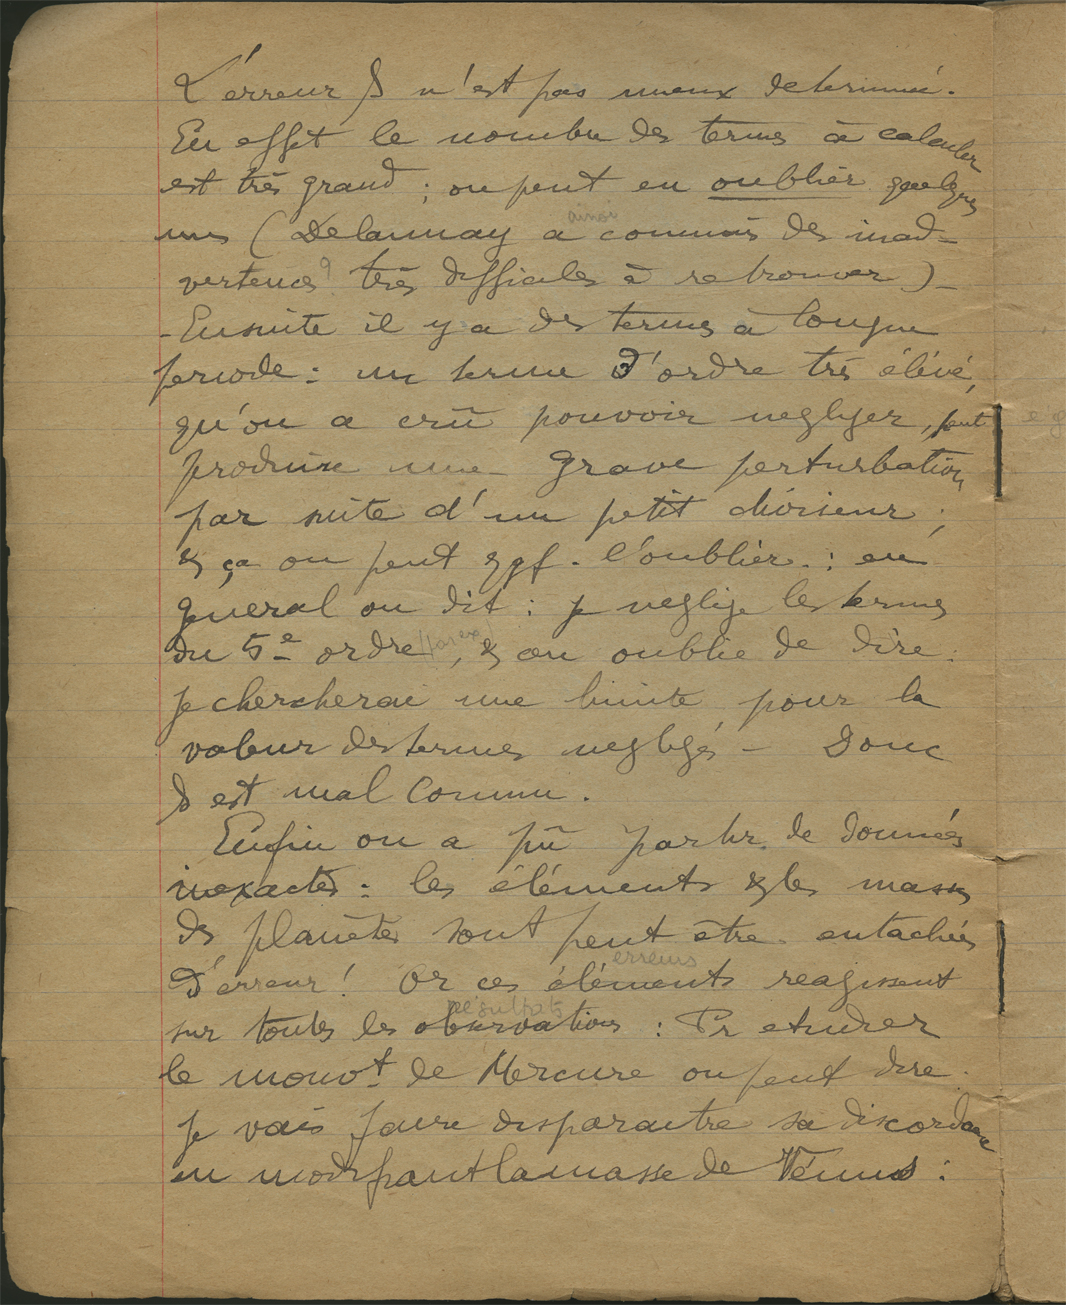 L'erreur δ n'est pas mieux determinée.
En effet le nombre des termes à calculer
est très grand ; on peut en oublier quelques
uns (Delaunay a commis des inad-
ainsi
vertences ? très difficiles à retrouver) -
- Ensuite il y a des termes à longue
periode : un terme d'ordre très élévé,
qu'on a crû pouvoir negliger, peut
produire une grave perturbation
par suite d'un petit diviseur ;
& ça on peut qqf. l'oublier. : en
gueral on dit : je neglige les termes
du 5e ordre (par ex), & on oublie de dire :
je chercherai une limite pour la
valeur des termes negligés - Donc
δ est mal connu.
Enfin on a pû partir de données
inexactes : les éléments & les masses
des planètes sont peut être entachées
d'erreur ! Or ces éléments reagissent
erreurs
sur toutes les observations : Pr etudier
résultats
le mouvt de Mercure on peut dire
je vais faire disparaitre sa discordance
en modifiant la masse de Vénus :